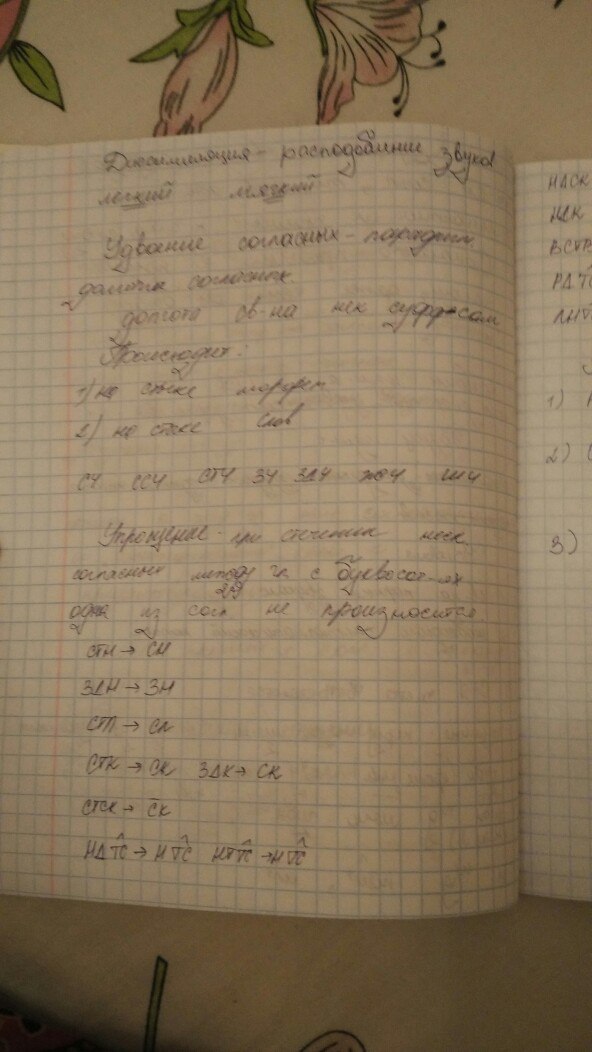 Диссимиляция - расподобление звука
легкий мягкий
Удвоение согласных -
долгих согласных.
долгота св-на нек суффиксам
Происходит:
1) на стыке морфем
2) на стыке слов
сч ссч стч зч здч жч шч
Упрощение - при стечении неск.
согласных между гл с буквосоч-ях
одна из согл не произносится
стн → сн
здн → зн
стл → сл
стк → ск здк → ск
стск → с̄к
ндт͡с → нт͡с нтт͡с → нт͡с
НДСК
ВСТВ
1)
2)
3)